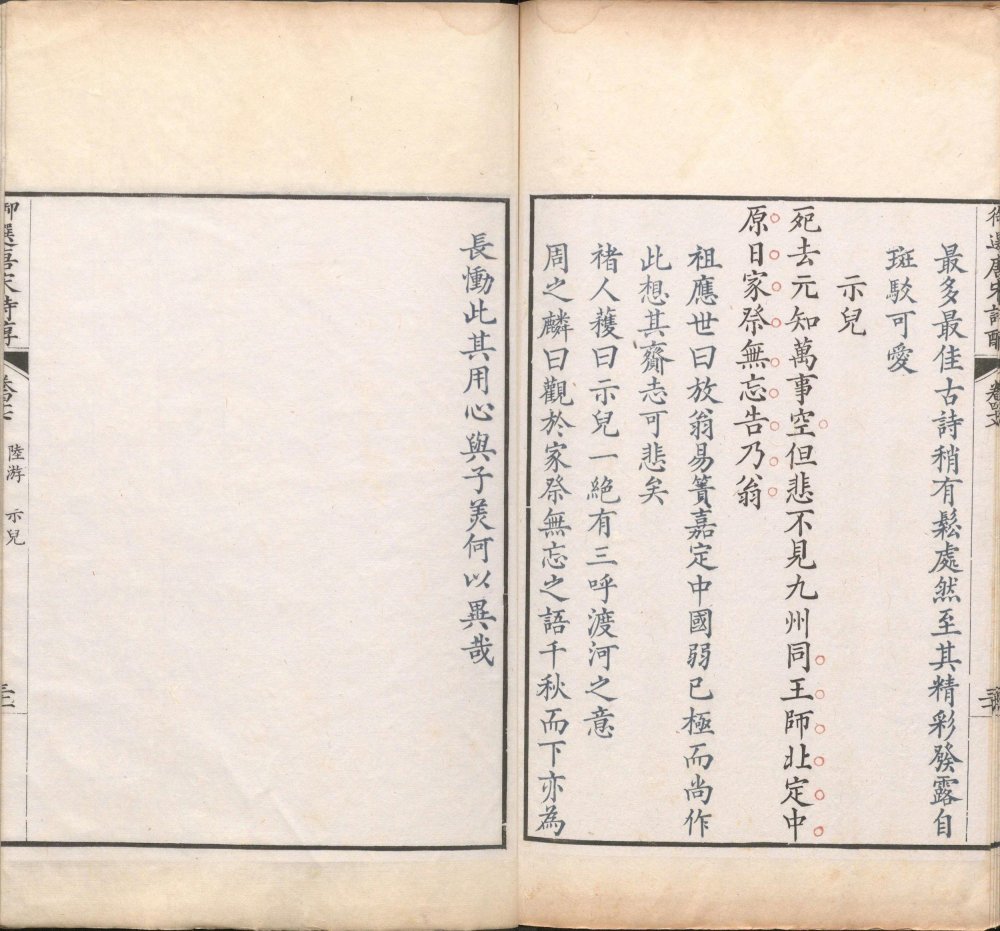 最多最佳古詩稍有鬆處然至其精彩發露自
斑駁可愛
示兒
死去元知萬事空但悲不見九州同王師北定中
原日家祭無忘告乃翁
祖應世曰放翁易簀嘉定中國弱已極而尚作
此想其齎志可悲矣
褚人穫曰示兒一絕有三呼渡河之意
周之麟曰觀於家祭無忘之語千秋而下亦為
長慟此其用心與子美何以異哉
御選唐宋詩醇
陸游 示兒